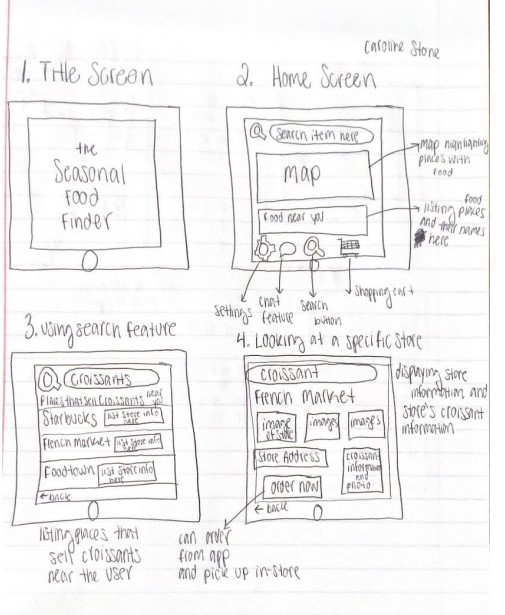 Caroline Stone
1. Title Screen
the
Seasonal
Food
Finder
2. Home Screen
Search item here
map
Food near you
map highlighting
places with
food
listing food places
and their names
here
settings
chat
feature
search
button
shopping cart
3. using search feature
Croissants
Places that sell croissants near you
Starbucks
list store info
here
French market
list store info
here
Foodtown
list store info
here
← back
listing places that
sell croissants
near the user
4. Looking at a specific store
croissant
French Market
image
of store
images
images
Store Address
croissant
information
and
photo
order now
← back
displaying store
information and
store's croissant
information
can order
from app
and pick up in-store